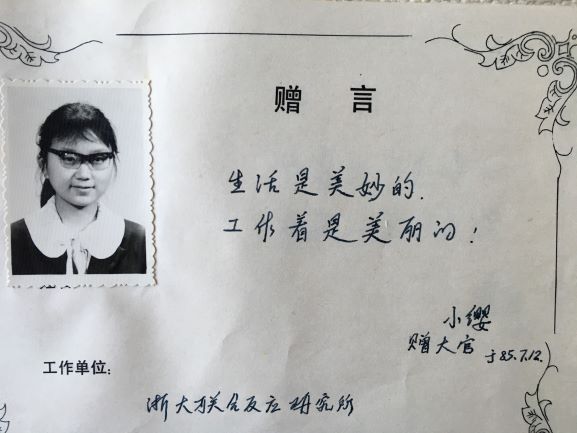 赠 言
生活是美妙的.
工作着是美丽的!
小缨
赠大官 于85.7.12.
工作单位:
浙大联合反应研究所